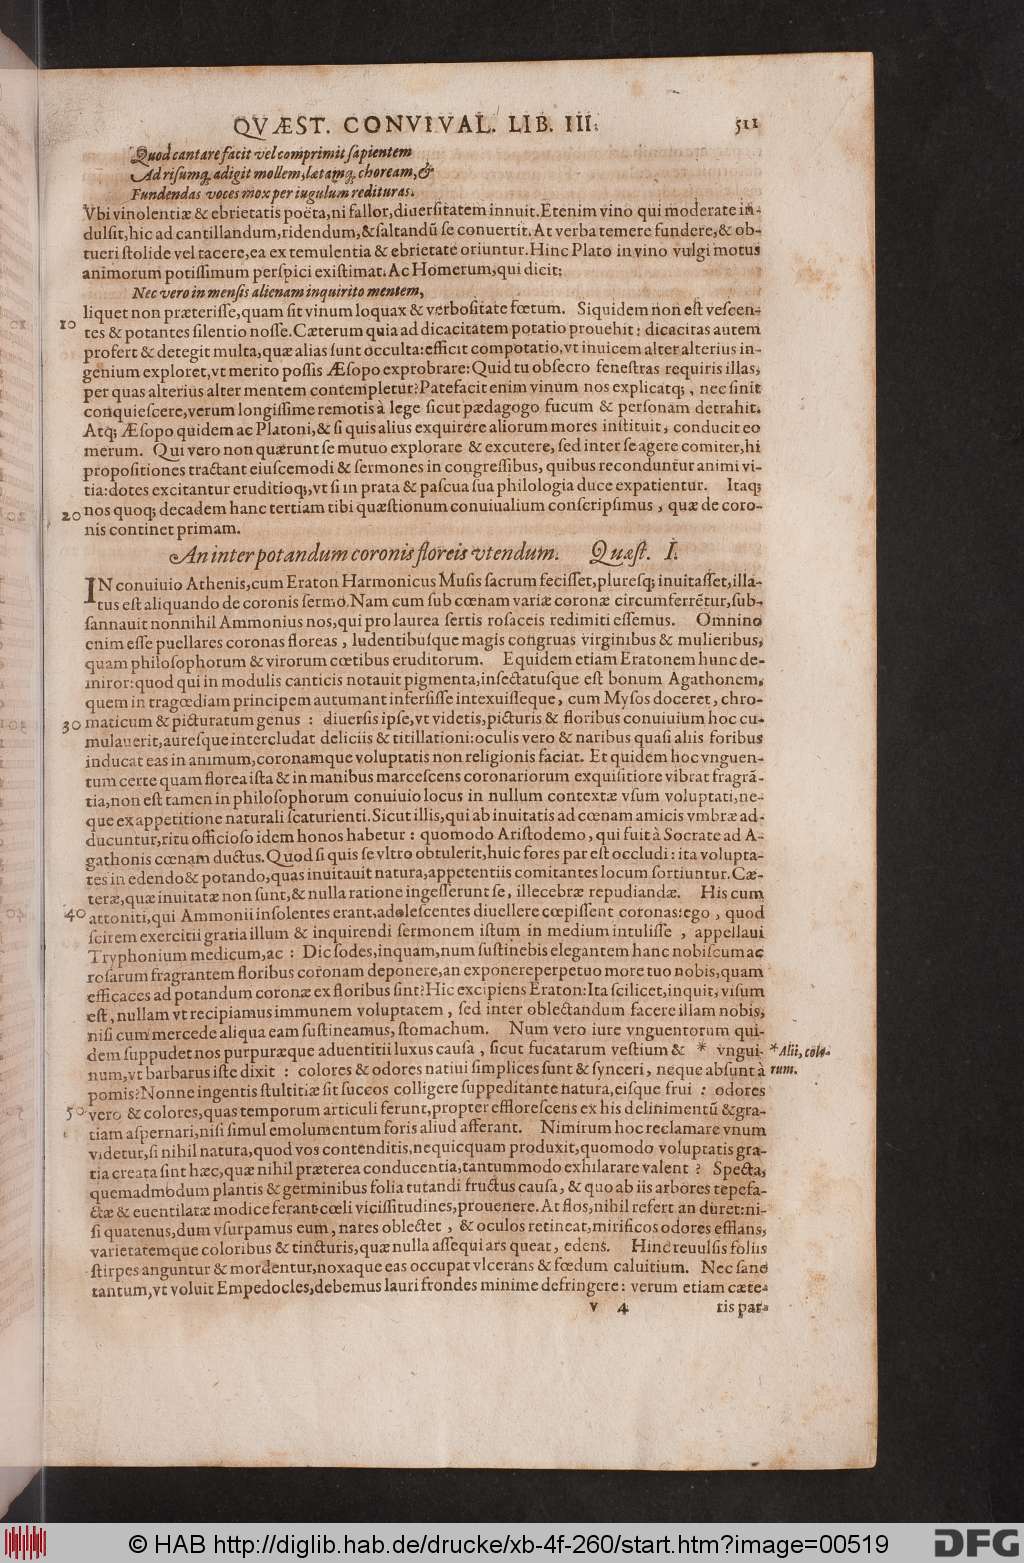 QVÆST. CONVIVAL. LIB. III. 511
Quod cantare facit vel comprimit sapientem
Ad risumq́ adigit mollem, lætamq́ choream, &
Fundendas voces mox per iugulum redituras.
Vbi vinolentiæ & ebrietatis poëta, ni fallor, diuersitatem innuit. Etenim vino qui moderate in-
dulsit, hic ad cantillandum, ridendum, & saltandũ se conuertit. At verba temere fundere, & ob-
tueri stolide vel tacere, ea ex temulentia & ebrietate oriuntur. Hinc Plato in vino vulgi motus
animorum potissimum perspici existimat. Ac Homerum, qui dicit;
Nec vero in mensis alienam inquirito mentem,
liquet non præterisse, quam sit vinum loquax & verbositate fœtum. Siquidem non est vescen-
10 tes & potantes silentio nosse. Cæterum quia ad dicacitatem potatio prouehit: dicacitas autem
profert & detegit multa, quæ alias sunt occulta: efficit compotatio, vt inuicem alter alterius in-
genium exploret, vt merito possis Æsopo exprobrare: Quid tu obsecro fenestras requiris illas,
per quas alterius alter mentem contempletur? Patefacit enim vinum nos explicatq;, nec sinit
conquiescere, verum longissime remotis à lege sicut pædagogo fucum & personam detrahit.
Atq; Æsopo quidem ac Platoni, & si quis alius exquirere aliorum mores instituit, conducit eo
merum. Qui vero non quærunt se mutuo explorare & excutere, sed inter se agere comiter, hi
propositiones tractant eiuscemodi & sermones in congressibus, quibus reconduntur animi vi-
tia: dotes excitantur eruditioq;, vt si in prata & pascua sua philologia duce expatientur. Itaq;
20 nos quoq; decadem hanc tertiam tibi quæstionum conuiualium conscripsimus, quæ de coro-
nis continet primam.
An inter potandum coronis floreis vtendum. Quæst. I.
IN conuiuio Athenis, cum Eraton Harmonicus Musis sacrum fecisset, pluresq; inuitasset, illa-
tus est aliquando de coronis sermo. Nam cum sub cœnam variæ coronæ circumferrētur, sub-
sannauit nonnihil Ammonius nos, qui pro laurea sertis rosaceis redimiti essemus. Omnino
enim esse puellares coronas floreas, ludentibusque magis congruas virginibus & mulieribus,
quam philosophorum & virorum cœtibus eruditorum. Equidem etiam Eratonem hunc de-
miror: quod qui in modulis canticis notauit pigmenta, insectatusque est bonum Agathonem,
quem in tragœdiam principem autumant insersisse intexuisseque, cum Mysos doceret, chro-
30 maticum & picturatum genus : diuersis ipse, vt videtis, picturis & floribus conuiuium hoc cu-
mulauerit, auresque intercludat deliciis & titillationi: oculis vero & naribus quasi aliis foribus
inducat eas in animum, coronamque voluptatis non religionis faciat. Et quidem hoc vnguen-
tum certe quam florea ista & in manibus marcescens coronariorum exquisitiore vibrat fragrā-
tia, non est tamen in philosophorum conuiuio locus in nullum contextæ vsum voluptati, ne-
que ex appetitione naturali scaturienti. Sicut illis, qui ab inuitatis ad cœnam amicis vmbræ ad-
ducuntur, ritu officioso idem honos habetur : quomodo Aristodemo, qui fuit à Socrate ad A-
gathonis cœnam ductus. Quod si quis se vltro obtulerit, huic fores par est occludi: ita volupta-
tes in edendo & potando, quas inuitauit natura, appetentiis comitantes locum sortiuntur. Cæ-
teræ, quæ inuitatæ non sunt, & nulla ratione ingesserunt se, illecebræ repudiandæ. His cum
40 attoniti, qui Ammonii insolentes erant, adolescentes diuellere cœpissent coronas: ego, quod
scirem exercitii gratia illum & inquirendi sermonem istum in medium intulisse, appellaui
Tryphonium medicum, ac : Dic sodes, inquam, num sustinebis elegantem hanc nobiscum ac
rosarum fragrantem floribus coronam deponere, an exponere perpetuo more tuo nobis, quam
efficaces ad potandum coronæ ex floribus sint? Hic excipiens Eraton: Ita scilicet, inquit, visum
est, nullam vt recipiamus immunem voluptatem, sed inter oblectandum facere illam nobis,
nisi cum mercede aliqua eam sustineamus, stomachum. Num vero iure vnguentorum qui-
dem suppudet nos purpuræque aduentitii luxus causa, sicut fucatarum vestium & * vngui- * Alii, colo-
num, vt barbarus iste dixit : colores & odores natiui simplices sunt & synceri, neque absunt à rum.
pomis? Nonne ingentis stultitiæ sit succos colligere suppeditante natura, eisque frui : odores
50 vero & colores, quas temporum articuli ferunt, propter efflorescens ex his delinimentũ & gra-
tiam aspernari, nisi simul emolumentum foris aliud afferant. Nimirum hoc reclamare vnum
videtur, si nihil natura, quod vos contenditis, nequicquam produxit, quomodo voluptatis gra-
tia creata sint hæc, quæ nihil præterea conducentia, tantummodo exhilarare valent ? Specta,
quemadmodum plantis & germinibus folia tutandi fructus causa, & quo ab iis arbores tepefa-
ctæ & euentilatæ modice ferant cœli vicissitudines, prouenere. At flos, nihil refert an duret: ni-
si quatenus, dum vsurpamus eum, nares oblectet, & oculos retineat, mirificos odores efflans,
varietatemque coloribus & tincturis, quæ nulla assequi ars queat, edens. Hinc reuulsis foliis
stirpes anguntur & mordentur, noxaque eas occupat vlcerans & fœdum caluitium. Nec sane
tantum, vt voluit Empedocles, debemus lauri frondes minime defringere: verum etiam cæte-
v 4 ris par-
© HAB http://diglib.hab.de/drucke/xb-4f-260/start.htm?image=00519 DFG